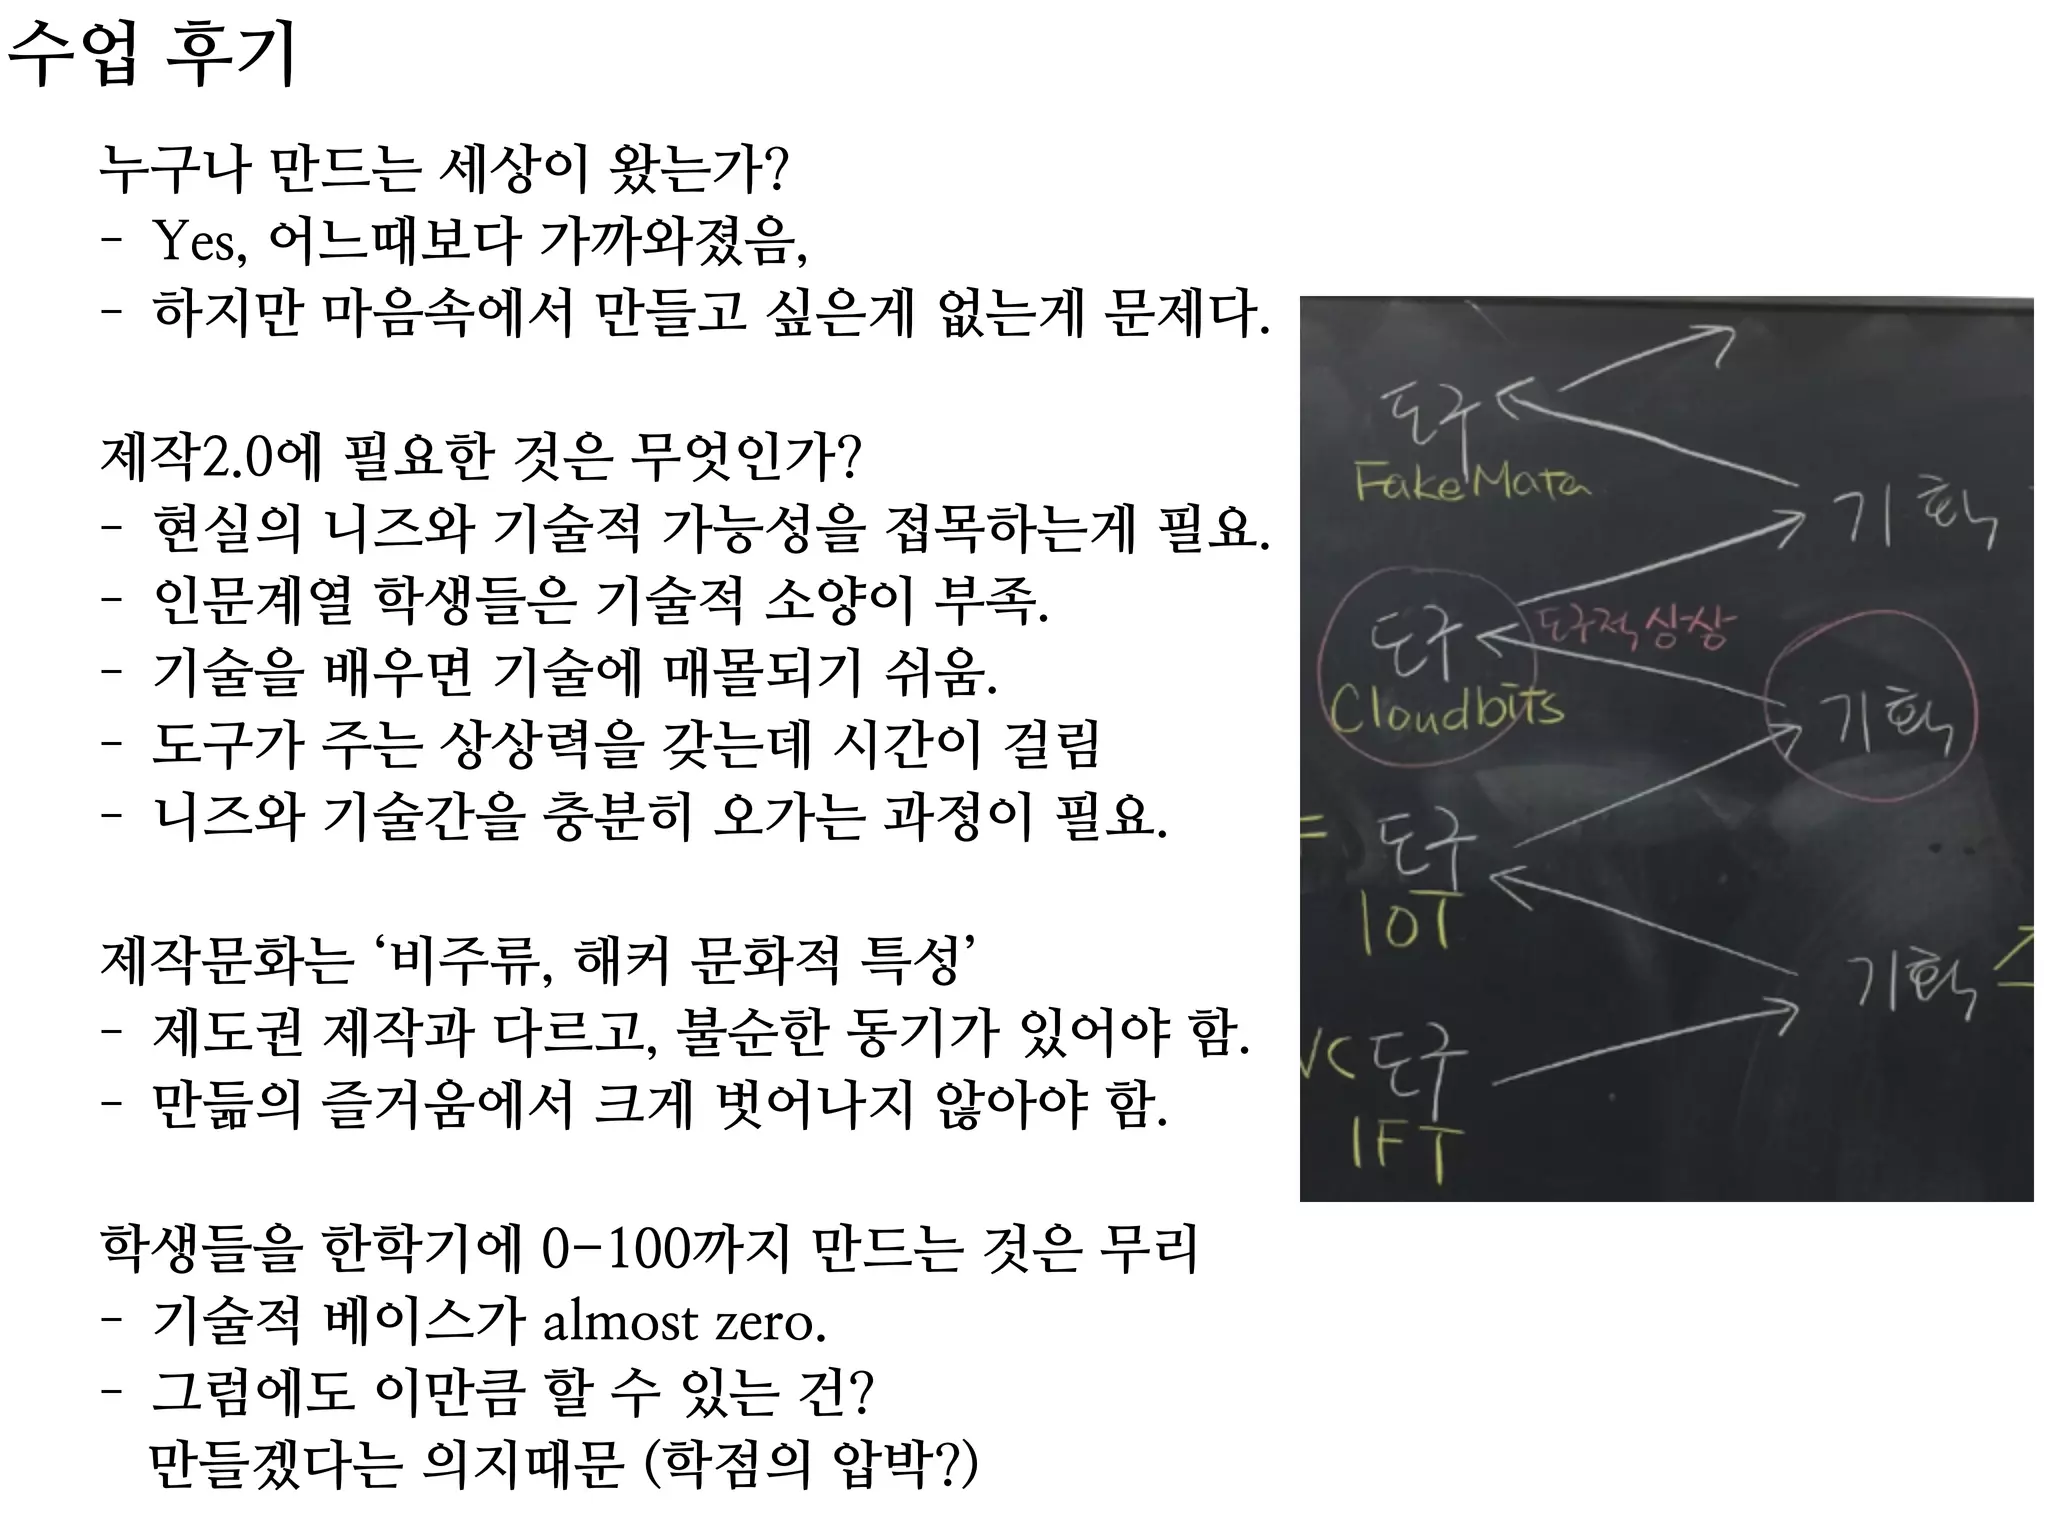 수업 후기
누구나 만드는 세상이 왔는가?
- Yes, 어느때보다 가까와졌음,
- 하지만 마음속에서 만들고 싶은게 없는게 문제다.
제작2.0에 필요한 것은 무엇인가?
- 현실의 니즈와 기술적 가능성을 접목하는게 필요.
- 인문계열 학생들은 기술적 소양이 부족.
- 기술을 배우면 기술에 매몰되기 쉬움.
- 도구가 주는 상상력을 갖는데 시간이 걸림
- 니즈와 기술간을 충분히 오가는 과정이 필요.
제작문화는 ‘비주류, 해커 문화적 특성’
- 제도권 제작과 다르고, 불순한 동기가 있어야 함.
- 만듦의 즐거움에서 크게 벗어나지 않아야 함.
학생들을 한학기에 0-100까지 만드는 것은 무리
- 기술적 베이스가 almost zero.
- 그럼에도 이만큼 할 수 있는 건?
만들겠다는 의지때문 (학점의 압박?)
도구
FakeMata
기획
도구적 상상
도구
Cloudbits
기획
도구
IOT
기획
도구
IFT